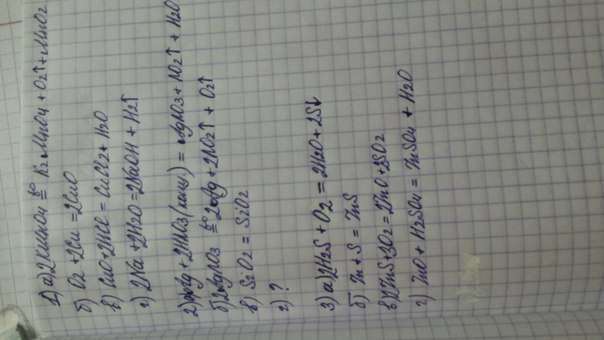 1) а) 2KMnO4 t°= K2MnO4 + O2↑ + MnO2
б) O2 + 2Cu = 2CuO
в) CuO + 2HCl = CuCl2 + H2O
г) 2Na + 2H2O = 2NaOH + H2↑
2) а) Ag + 2HNO3 (конц) = AgNO3 + NO2↑ + H2O
б) 2AgNO3 t°= 2Ag + 2NO2↑ + O2↑
в) SiO2 = SiO2
г) ?
3) а) 2H2S + O2 = 2H2O + 2S↓
б) Zn + S = ZnS
в) 2ZnS + 3O2 = 2ZnO + 2SO2
г) ZnO + H2SO4 = ZnSO4 + H2O